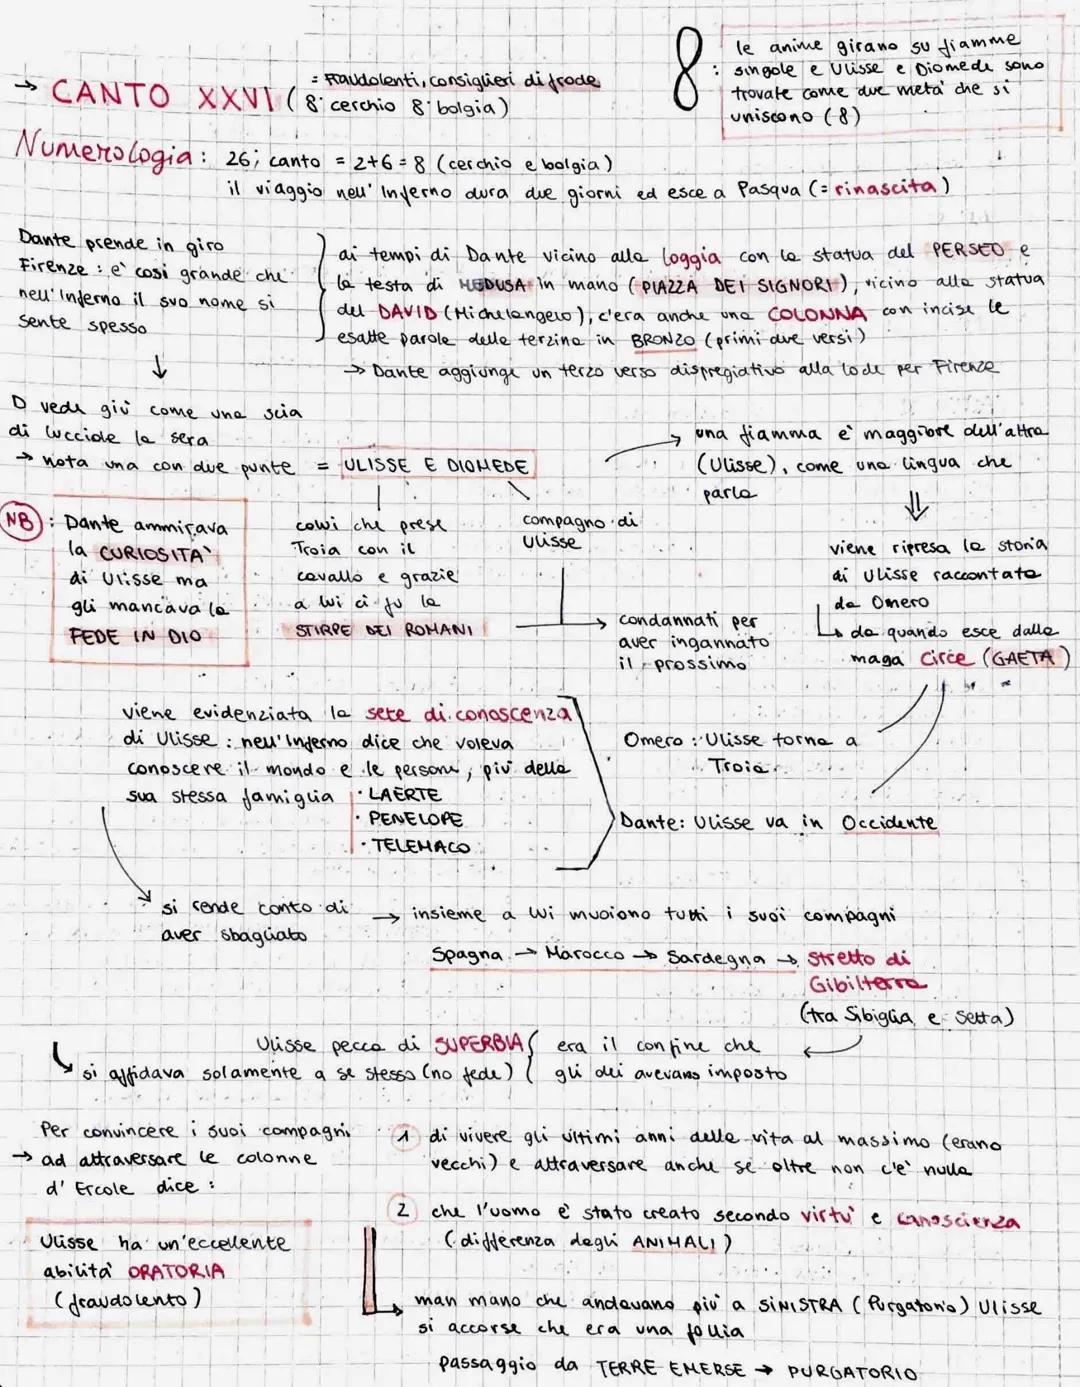 8 : le anime girano su fiamme
singole e Ulisse e Diomede sono
trovate come due metà che si
uniscono (8)
→ CANTO XXVI (8° cerchio 8° bolgia)
= Fraudolenti, consiglieri di frode
Numerologia : 26; canto = 2+6 = 8 (cerchio e bolgia)
il viaggio nell'Inferno dura due giorni ed esce a Pasqua (= rinascita)
Dante prende in giro
Firenze : è così grande che
nell'Inferno il suo nome si
sente spesso
ai tempi di Dante vicino alla loggia con la statua del PERSEO e
la testa di MEDUSA in mano (PIAZZA DEI SIGNORI), vicino alla statua
del DAVID (Michelangelo), c'era anche una COLONNA con incise le
esatte parole della terzina in BRONZO (primi due versi)
→ Dante aggiunge un terzo verso dispregiativo alla lode per Firenze
D vede giù come una scia
di lucciole la sera
→ nota una con due punte = ULISSE E DIOMEDE
→ una fiamma è maggiore dell'altra
(Ulisse), come una lingua che
parla
NB : Dante ammirava
la CURIOSITA'
di Ulisse ma
gli mancava la
FEDE IN DIO
colui che prese
Troia con il
cavallo e grazie
a lui ci fu la
STIRPE DEI ROMANI
compagno di
Ulisse
→ condannati per
aver ingannato
il prossimo
viene ripresa la storia
di Ulisse raccontata
da Omero
↳ da quando esce dalla
maga Circe (GAETA)
viene evidenziata la sete di conoscenza
di Ulisse : nell'Inferno dice che voleva
conoscere il mondo e le persone, più della
sua stessa famiglia
· LAERTE
· PENELOPE
· TELEMACO
Omero : Ulisse torna a
Troia
Dante : Ulisse va in Occidente
si rende conto di
aver sbagliato
→ insieme a lui muoiono tutti i suoi compagni
Spagna → Marocco → Sardegna → stretto di
Gibilterra
(tra Sibiglia e Setta)
Ulisse pecca di SUPERBIA
↳ si affidava solamente a se stesso (no fede)
era il confine che
gli dei avevano imposto
Per convincere i suoi compagni
→ ad attraversare le colonne
d'Ercole dice :
1 di vivere gli ultimi anni della vita al massimo (erano
vecchi) e attraversare anche se oltre non c'è nulla
2 che l'uomo è stato creato secondo virtù e canoscienza
(differenza dagli ANIMALI)
Ulisse ha un'eccellente
abilità ORATORIA
(fraudolento)
→ man mano che andavano più a SINISTRA (Purgatorio) Ulisse
si accorse che era una follia
passaggio da TERRE EMERSE → PURGATORIO